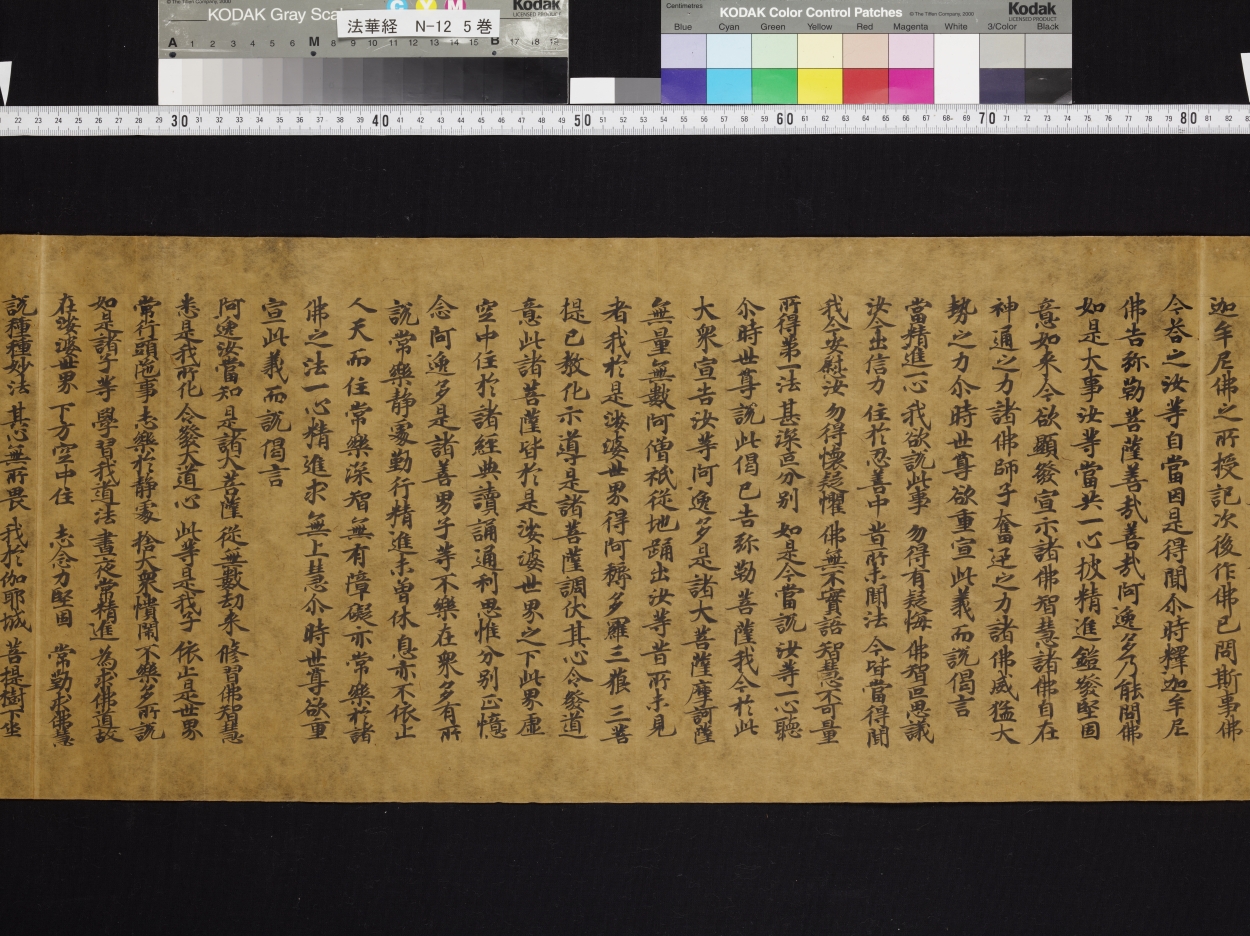 © The Tiffen Company, 2000
KODAK Gray Scale
C Y M
Kodak
LICENSED PRODUCT
法華経 N-12 5巻
A 1 2 3 4 5 6 M 8 9 10 11 12 13 14 15 B 17 18 19
Centimetres
KODAK Color Control Patches
© The Tiffen Company, 2000
Kodak
LICENSED PRODUCT
Blue Cyan Green Yellow Red Magenta White 3/Color Black
22 23 24 25 26 27 28 29 30 31 32 33 34 35 36 37 38 39 40 41 42 43 44 45 46 47 48 49 50 51 52 53 54 55 56 57 58 59 60 61 62 63 64 65 66 67 68 69 70 71 72 73 74 75 76 77 78 79 80 81 82
迦牟尼佛之所授記次後作佛已問斯事佛
今荅之汝等自當因是得聞尒時釋迦牟尼
佛告弥勒菩薩善哉善哉阿逸多乃能問佛
如是大事汝等當共一心披精進鎧發堅固
意如来今欲顯發宣示諸佛智慧諸佛自在
神通之力諸佛師子奮迅之力諸佛威猛大
勢之力尒時世尊欲重宣此義而說偈言
當精進一心 我欲說此事 勿得有疑悔 佛智叵思議
汝今出信力 住於忍善中 昔所未聞法 今皆當得聞
我今安慰汝 勿得懷疑懼 佛無不實語 智慧不可量
所得第一法 甚深叵分別 如是今當說 汝等一心聽
尒時世尊說此偈已告弥勒菩薩我今於此
大衆宣告汝等阿逸多是諸大菩薩摩訶薩
無量無數阿僧祇從地踊出汝等昔所未見
者我於是娑婆世界得阿耨多羅三藐三菩
提已教化示導是諸菩薩調伏其心令發道
意此諸菩薩皆於是娑婆世界之下此界虛
空中住於諸經典讀誦通利思惟分別正憶
念阿逸多是諸善男子等不樂在衆多有所
說常樂静處勤行精進未曽休息亦不依止
人天而住常樂深智無有障礙亦常樂於諸
佛之法一心精進求無上慧尒時世尊欲重
宣此義而說偈言
阿逸汝當知 是諸大菩薩 從無數劫来 修習佛智慧
悉是我所化 令發大道心 此等是我子 依止是世界
常行頭陁事 志樂於静處 捨大衆憒閙 不樂多所說
如是諸子等 學習我道法 晝夜常精進 為求佛道故
在娑婆世界 下方空中住 志念力堅固 常勤求佛慧
說種種妙法 其心無所畏 我於伽耶城 菩提樹下坐